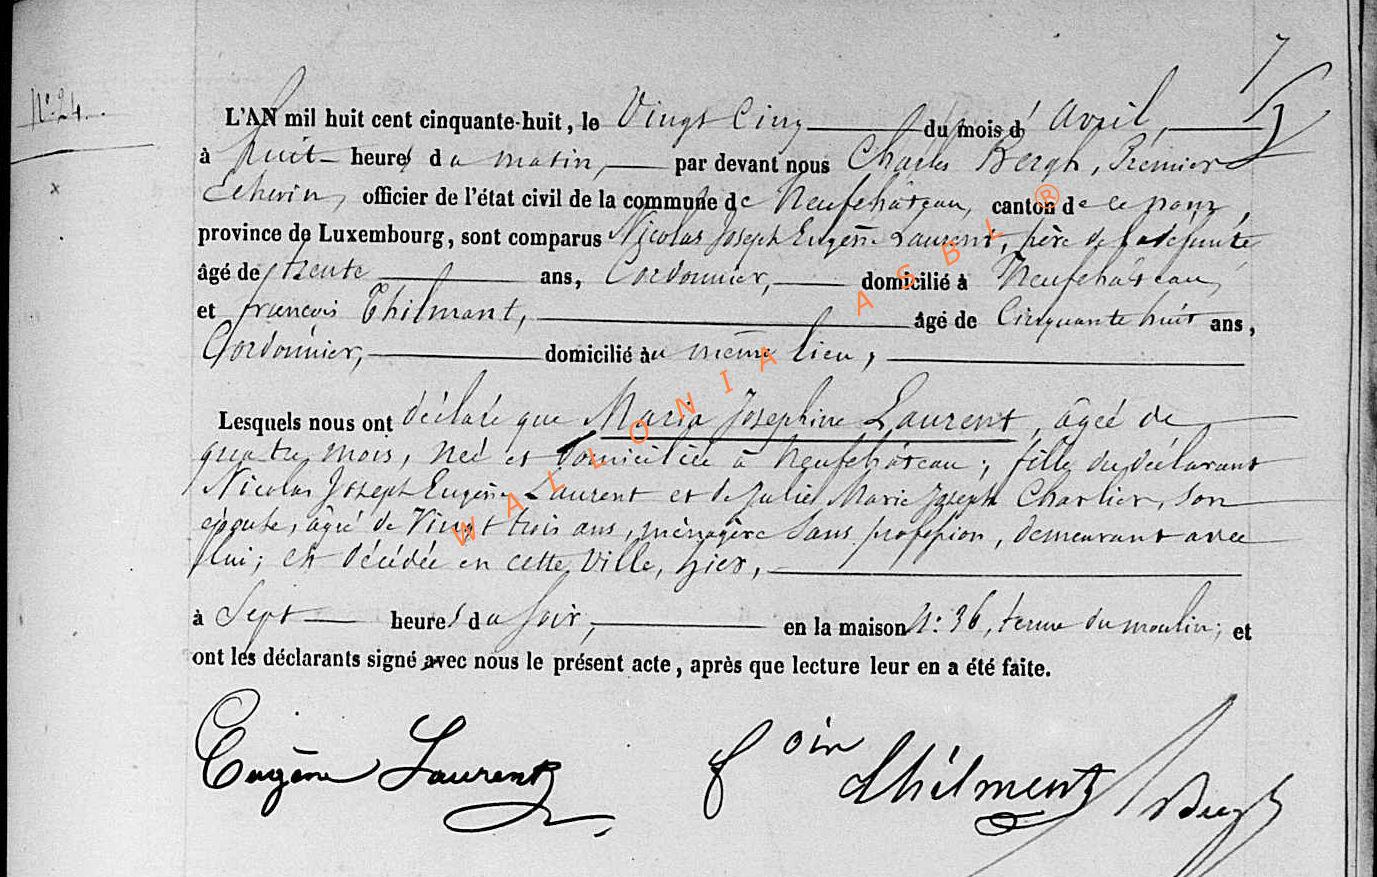 7
N° 24.
L'AN mil huit cent cinquante-huit, le Vingt Cinq du mois d'Avril,
à huit heures du matin, par devant nous Charles Bergh, Premier
Echevin, officier de l'état civil de la commune de Neufchâteau, canton de ce nom,
province de Luxembourg, sont comparus Nicolas Joseph Eugène Laurent, père de la defunte
âgé de trente ans, Cordonnier, domicilié à Neufchâteau,
et françois Thilmant, âgé de Cinquante huit ans,
Cordonnier, domicilié au même lieu,
Lesquels nous ont déclaré que Maria Josephine Laurent, âgée de
quatre mois, née et domiciliée à Neufchâteau; fille du déclarant
Nicolas Joseph Eugène Laurent et de Julie Marie Joseph Charlier, Son
épouse, âgée de Vingt trois ans, ménagère Sans profession, demeurant avec
lui; est décédée en cette Ville, hier,
à Sept heures du soir, en la maison N° 36, terme du moulin; et
ont les déclarants signé avec nous le présent acte, après que lecture leur en a été faite.
Eugène Laurent f oir thilment Bergh
WALLONIA ASBL ®